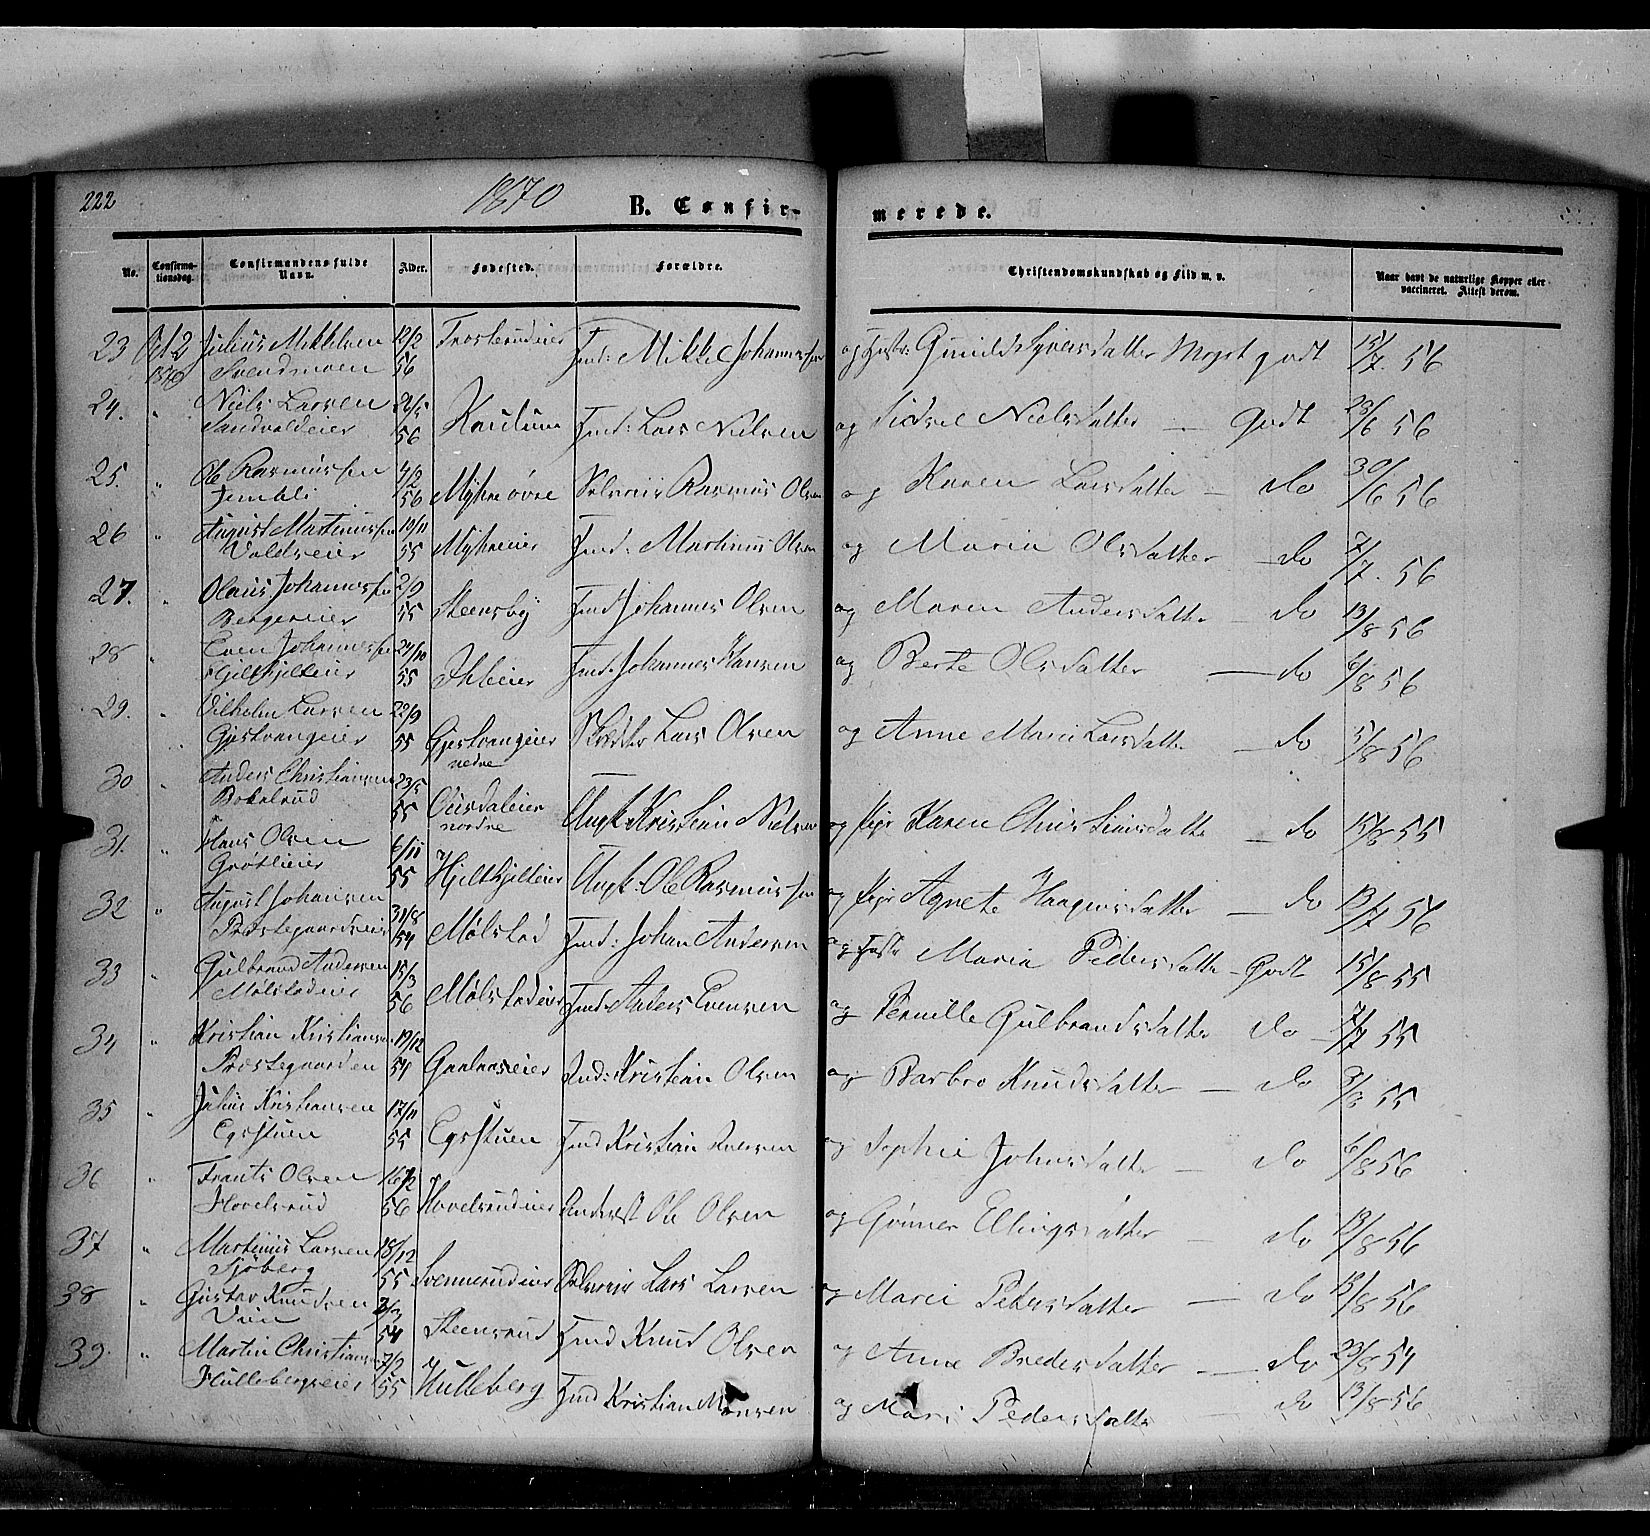 222
1870
B. Confir-
merede.
No.
Confirma-
tionsdag.
Confirmandens fulde
Navn.
Alder.
Fødested.
Forældre.
Christendomskundskab og Flid m. v.
Naar havt de naturlige Kopper eller
vaccineret. Attest derom.
23 Oct 2 Julius Mikkelsen 12/2 Frosterudeier Imd: Mikkel Johannessen og Hustr: Gunild Syversdatter Meget godt 15/7. 56
1870 Svendmoen 56
24. " Niels Larsen 26/5 Kaulum Imd: Lars Nielsen og Sidsel Nielsdatter — Godt 23/6 56
Sandvoldeier 56
25. " Ole Rasmussen 4/2 Myhre øvre Selveier Rasmus Olsen og Karen Larsdatter — do 30/6 56
Jembli 56
26 " August Martinussen 19/11 Myhreeier Imd: Martinus Olsen og Maria Olsdatter — do 2/7. 56
Voldseier 55
27. " Olaus Johannessen 2/9 Steensby Imd Johannes Olsen og Maren Andersdatter — do 13/8 56
Bergereier 55
28 " Even Johannessen 24/10 Ihleeier Imd: Johannes Hansen og Berte Olsdatter — do 6/8 56
Hjeltkjelteier 55
29. " Vilhelm Larsen 22/9 Gjestvangeier Skrædder Lars Olsen og Anne Marie Larsdatter — do 5/8 56
Gjestvangeier 55 nedre
30 " Anders Christiansen 23/5 Ousdaleier Ungk: Kristian Nielsen og Pige Karen Christiansdatter — do 15/8 55
Bokelrud 55 nordre
31. " Hans Olsen 6/11 Hjeltkjelteier Ungk: Ole Rasmussen og Pige Agnete Haagensdatter — do 13/7 56
Grøtlieier 55
32 " August Johansen 31/8 Mølstad Imd: Johan Andersen og Hustr Maria Pedersdatter — Godt 15/8 55
Præstegaardseier 54
33 " Gulbrand Andersen 15/3 Mølstadeier Imd: Anders Evensen og Pernille Gulbrandsdatter do 2/7 55
Mølstadeier 56
34 " Kristian Kristiansen 19/12 Gaalaaseier Ind: Kristian Olsen og Barbro Knudsdatter — do 3/8 55
Præstegaarden 54
35 " Julius Kristiansen 17/11 Egsstuen Imd Kristian Iversen og Sophie Johnsdatter — do 6/8 56
Egsstuen 55
36 " Frants Olsen 16/2 Hovelsrudeier Ole Olsen og Gunner Ellingsdatter — do 13/8 56
Hovelsrud 56
37 " Martinus Larsen 18/12 Svennerudeier Selveier Lars Larsen og Marie Petersdatter — do 13/8 56
Sjøberg 55
38 " Gustav Knudsen 2/3 Steensrud Imd Knud Olsen og Anne Bredesdatter — do 23/8 54
54
39. " Martin Christiansen 7/2 Hulleberg Imd Kristian Monsen og Mari Pedersdatter do 13/8 56
Hullebergseier 55